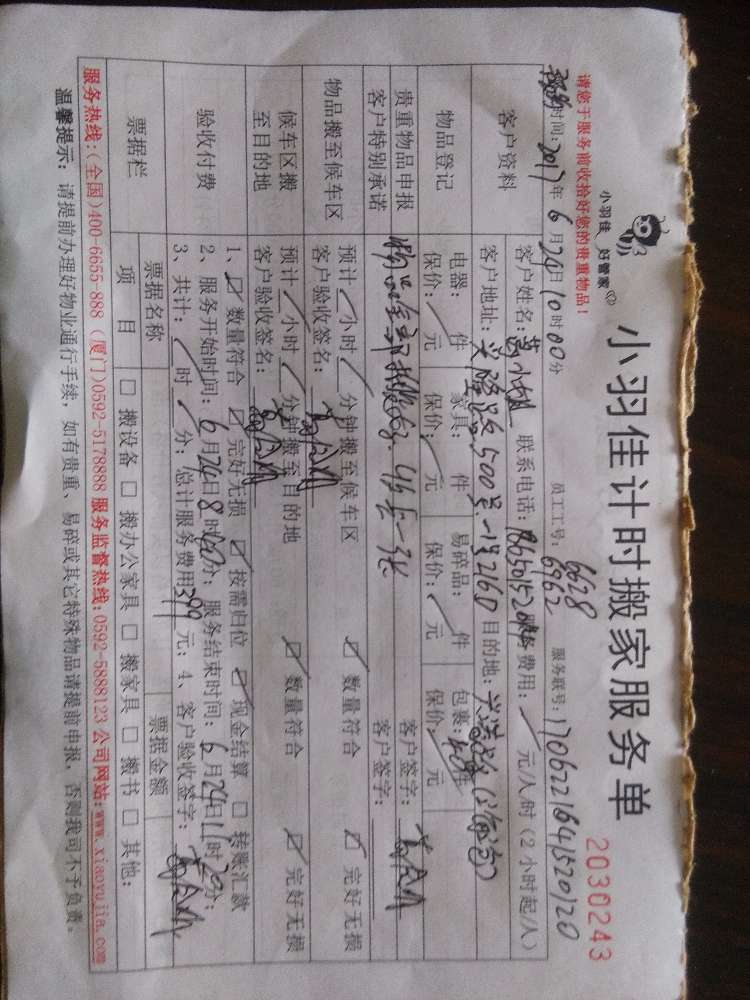 小羽佳 好管家
小羽佳计时搬家服务单
2030243
请您于服务前收拾好您的贵重物品!
员工工号: 6628
6962
服务联号: 170622164152012D
时间: 2017年6月24日10时00分
客户资料
客户姓名: 葛小姐 联系电话: 费用: 元/人/时 (2小时起/人)
客户地址: 兴隆路500号一1号216D 目的地:
物品登记
电器: 件 家具: 件 易碎品: 件 包裹: 件
保价: 元 保价: 元 保价: 元 保价: 元
贵重物品申报
客户签字:
客户特别承诺
客户签字:
物品搬至候车区
预计 小时 分钟搬至候车区 ☑ 数量符合 ☑ 完好无损
客户验收签名:
候车区搬
至目的地
预计 小时 分钟搬至目的地 ☑ 数量符合 ☑ 完好无损
客户验收签名:
验收付费
1、☑ 数量符合 ☑ 完好无损 ☑ 按需归位 ☑ 现金结算 □ 转账汇款
2、服务开始时间: 6月24日8时 分; 服务结束时间: 6月24日11时 分;
3、共计: 时 分; 总计服务费用399元; 4、客户验收签字:
票据栏
票据名称 票据金额
项 目 □ 搬设备 □ 搬办公家具 □ 搬家具 □ 搬书 □ 其他:
服务热线:(全国)400-6655-888 (厦门)0592-5178888 服务监督热线:0592-5888123 公司网站:www.xiaoyujia.com
温馨提示: 请提前办理好物业通行手续, 如有贵重、易碎或其它特殊物品请提前申报, 否则我司不予负责。